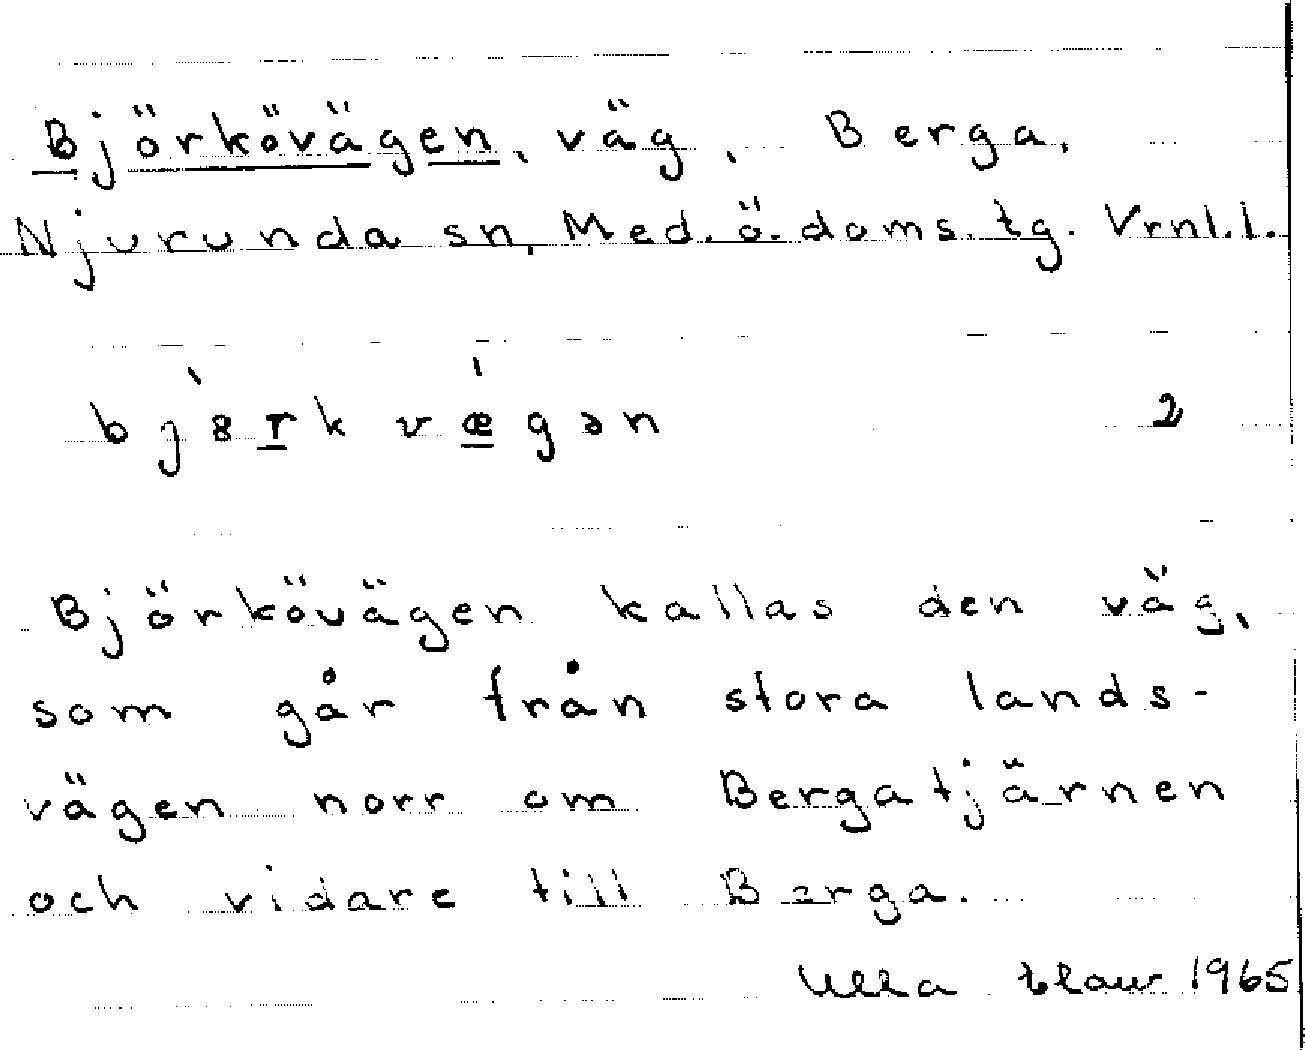 Björkövägen, väg, Berga,
Njurunda sn, Med. ö. doms. tg. Vrnl. l.
bj8rkvægən 2
Björkövägen kallas den väg,
som går från stora lands-
vägen norr om Bergatjärnen
och vidare till Berga.
Ulla 1965